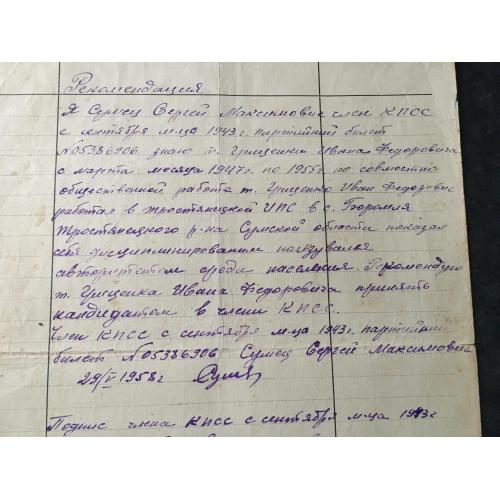 Рекомендация
Я Сумец Сергей Максимович член КПСС
с сентября м-ца 1943 г. партийный билет
№05386906 знаю т. Гриценка Ивана Федоровича
с марта месяца 1947 г. по 1955 г. по совместно
общественной работе т. Гриценко Иван Федорович
работал в Тростянецкой в с. Боромля
Тростянецкого р-на Сумской области показал
себя дисциплинированым пользувался
авторитетом среди населения. Рекомендую
т. Гриценка Ивана Федоровича принять
кандидатом в члени КПСС.
Член КПСС с сентября м-ца 1943 г. партийний
билет №05386906 Сумец Сергей Максимович
29/V 1958 г Сумец
Подпис члена КПСС с сентября м-ца 1943 г